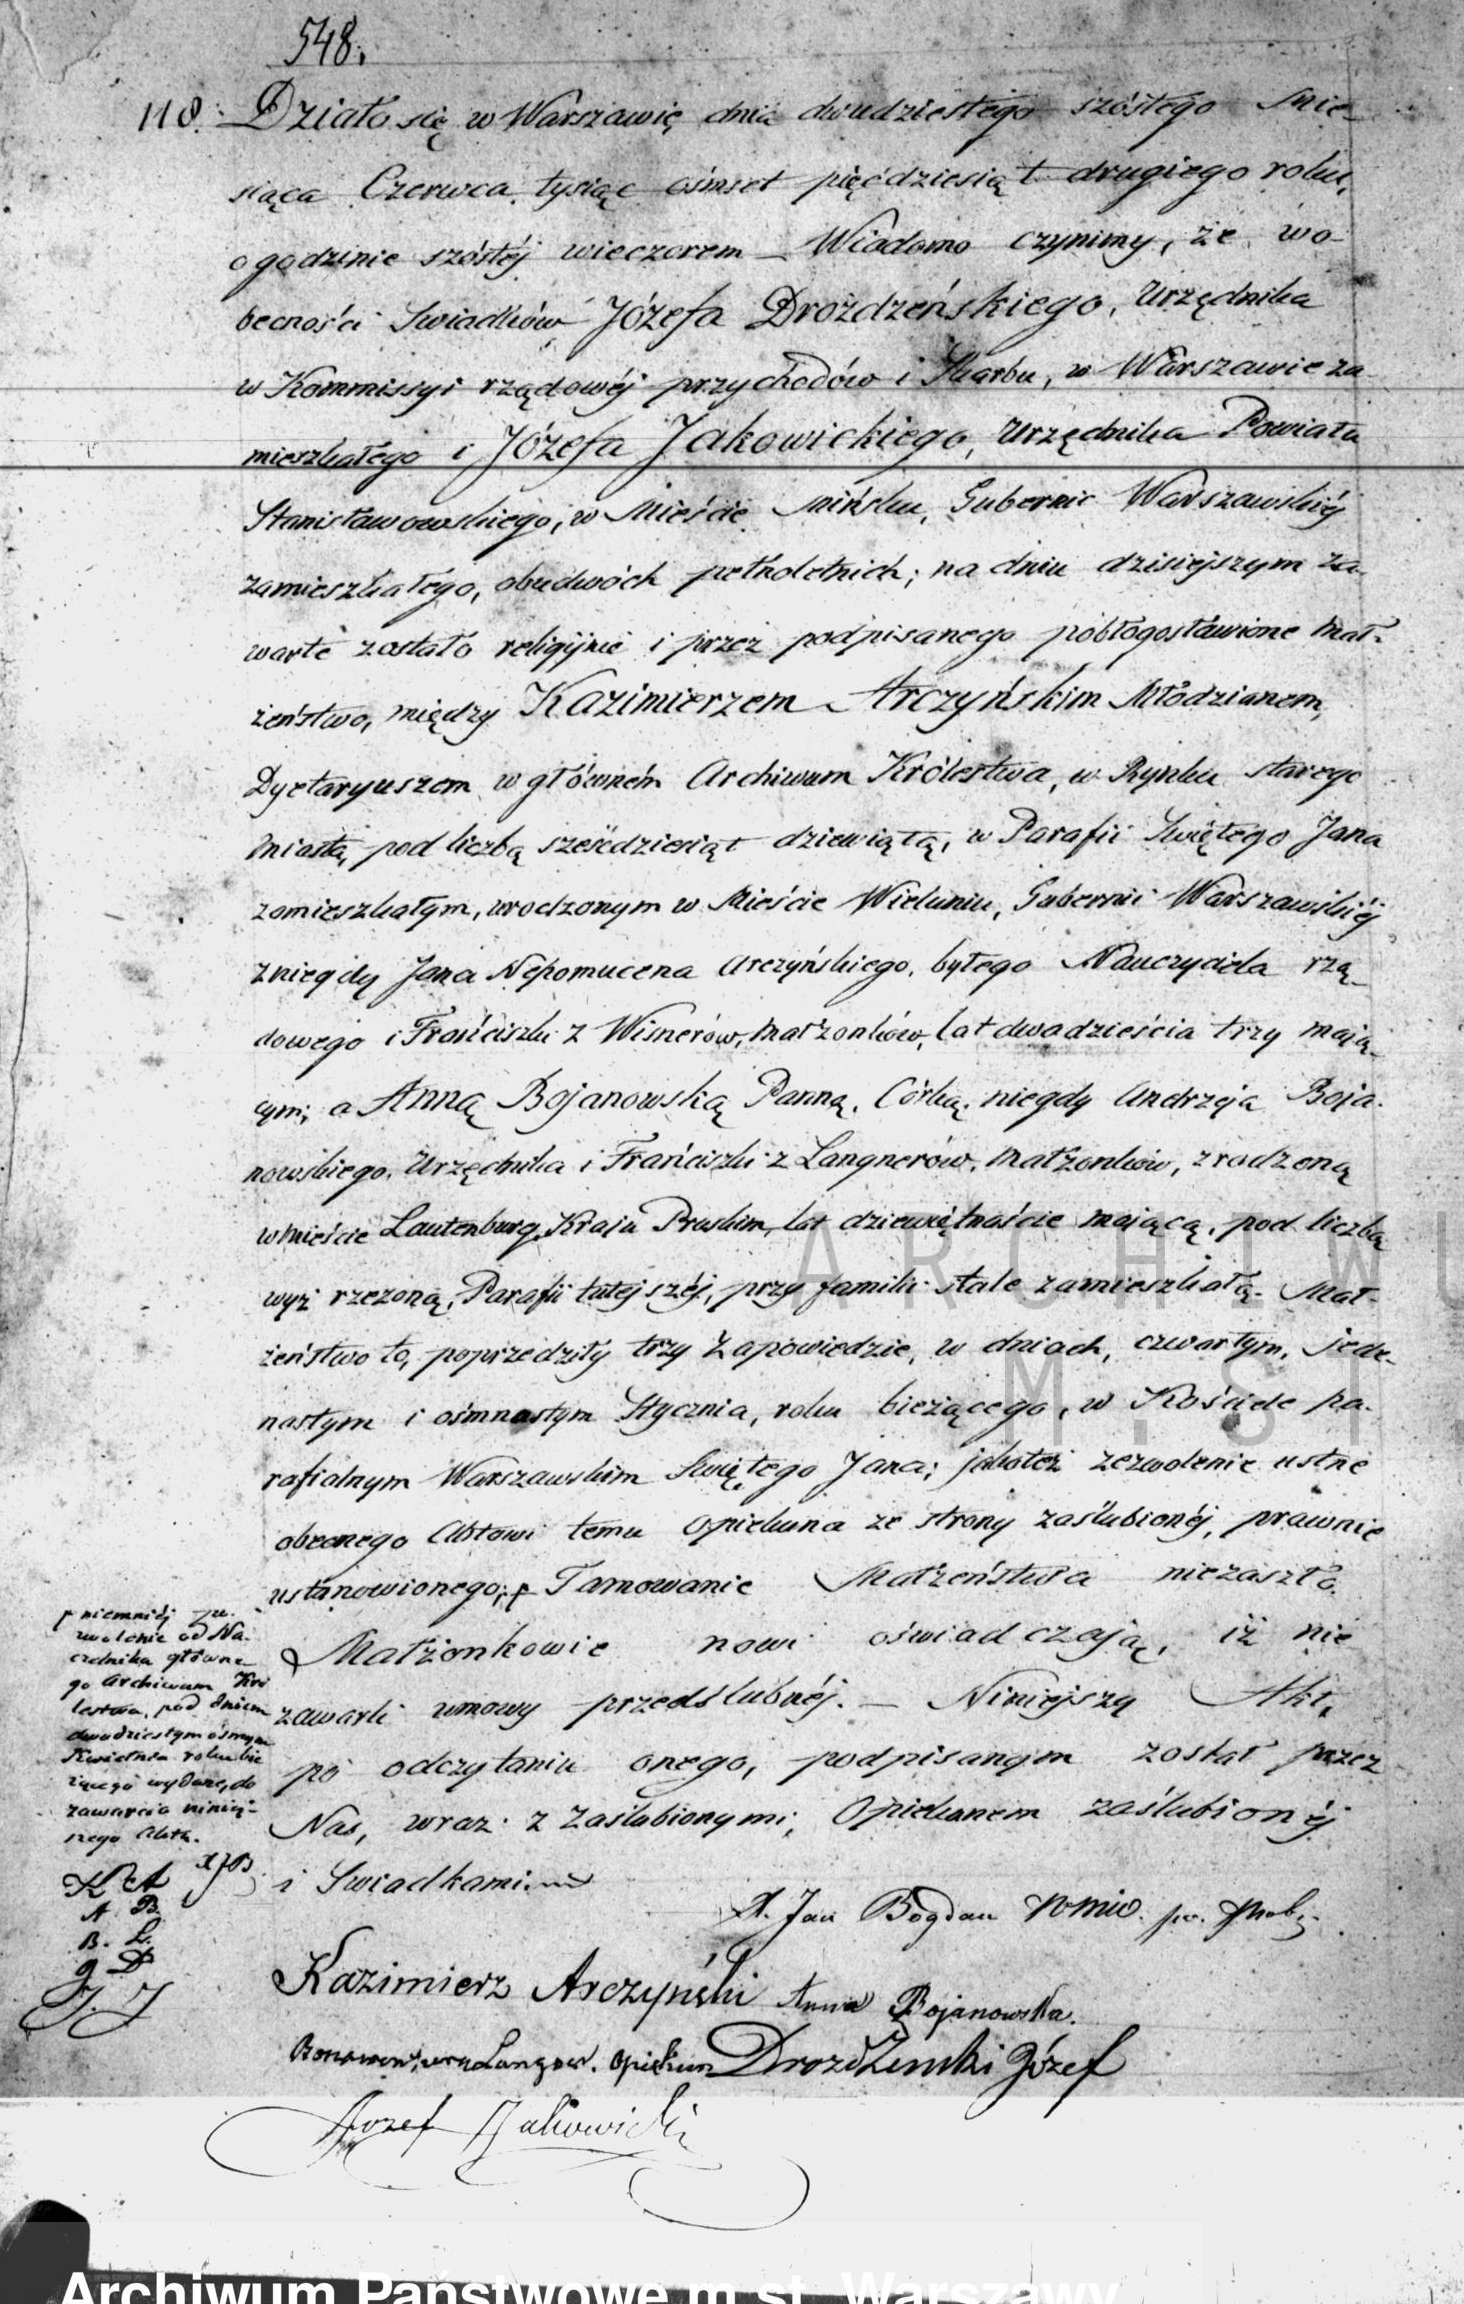 548.
118. Działo się w Warszawie dnia dwudziestego szóstego Mie-
siąca Czerwca tysiąc ośmset pięćdziesiąt drugiego roku,
o godzinie szóstéj wieczorem – Wiadomo czynimy, że w o-
becności Swiadków Józefa Drożdzeńskiego, Urzędnika
w Kommissyi rządowéj przychodów i Skarbu, w Warszawie za-
mieszkałego i Józefa Jakowickiego, Urzędnika Powiatu
Stanisławowskiego, w Mieście Mińsku, Gubernii Warszawskiéj
zamieszkałego, obudwóch pełnoletnich; na dniu dzisiejszym za-
warte zostało religijnie i przez podpisanego pobłogosławione Mał-
żeństwo, między Kazimierzem Arczyńskim Młodzianem,
Dyetaryuszem w głównem Archiwum Królestwa, w Rynku starego
Miasta, pod liczbą sześćdziesiąt dziewiątą, w Parafii Swiętego Jana
zamieszkałym, urodzonym w Mieście Wieluniu, Gubernii Warszawskiéj
z niegdy Jana Nepomucena Arczyńskiego, byłego Nauczyciela rzą-
dowego i Franciszki z Wisnerów, Małżonków, lat dwadzieścia trzy mają-
cym; a Anną Bojanowską Panną, Córką niegdy Andrzeja Boja-
nowskiego, Urzędnika i Franciszki z Langnerów, Małżonków, zrodzoną
w Mieście Lautenburg, Kraju Pruskim, lat dziewiętnaście mającą, pod liczbą
wyż rzezoną, Parafii tutejszéj, przy familii stale zamieszkałą. Mał-
żeństwo to, poprzedziły trzy Zapowiedzie, w dniach, czwartym, jede-
nastym i ośmnastym Stycznia, roku bieżącego, w Kościele pa-
rafialnym Warszawskim Swiętego Jana; jakoteż zezwolenie ustne
obecnego Aktowi temu Opiekuna ze strony zaślubionéj, prawnie
ustanowionego; Tamowanie Małżeństwa niezaszło.
Małżonkowie nowi oświadczają, iż nie
zawarli umowy przedślubnéj. – Niniejszy Akt,
po odczytaniu onego, podpisanym został przez
Nas, wraz z Zaślubionymi, Opiekunem zaślubionéj
i Swiadkami.
niemniéj ze-
zwolenie od Na-
czelnika główne-
go Archiwum Kró
lestwa, pod dniem
dwudziestym ósmym
Kwietnia roku bie
żącego wydane, do
zawarcia niniej-
szego Aktu.
K A XJB
A. B.
B. L.
J D
J. J
X. Jan Bogdan
Kazimierz Arczyński Anna Bojanowska.
Langner. Opiekun Drożdżeński Józef
Józef Jakowicki
ARCHIWU
M. ST
Archiwum Państwowe m.st. Warszawy